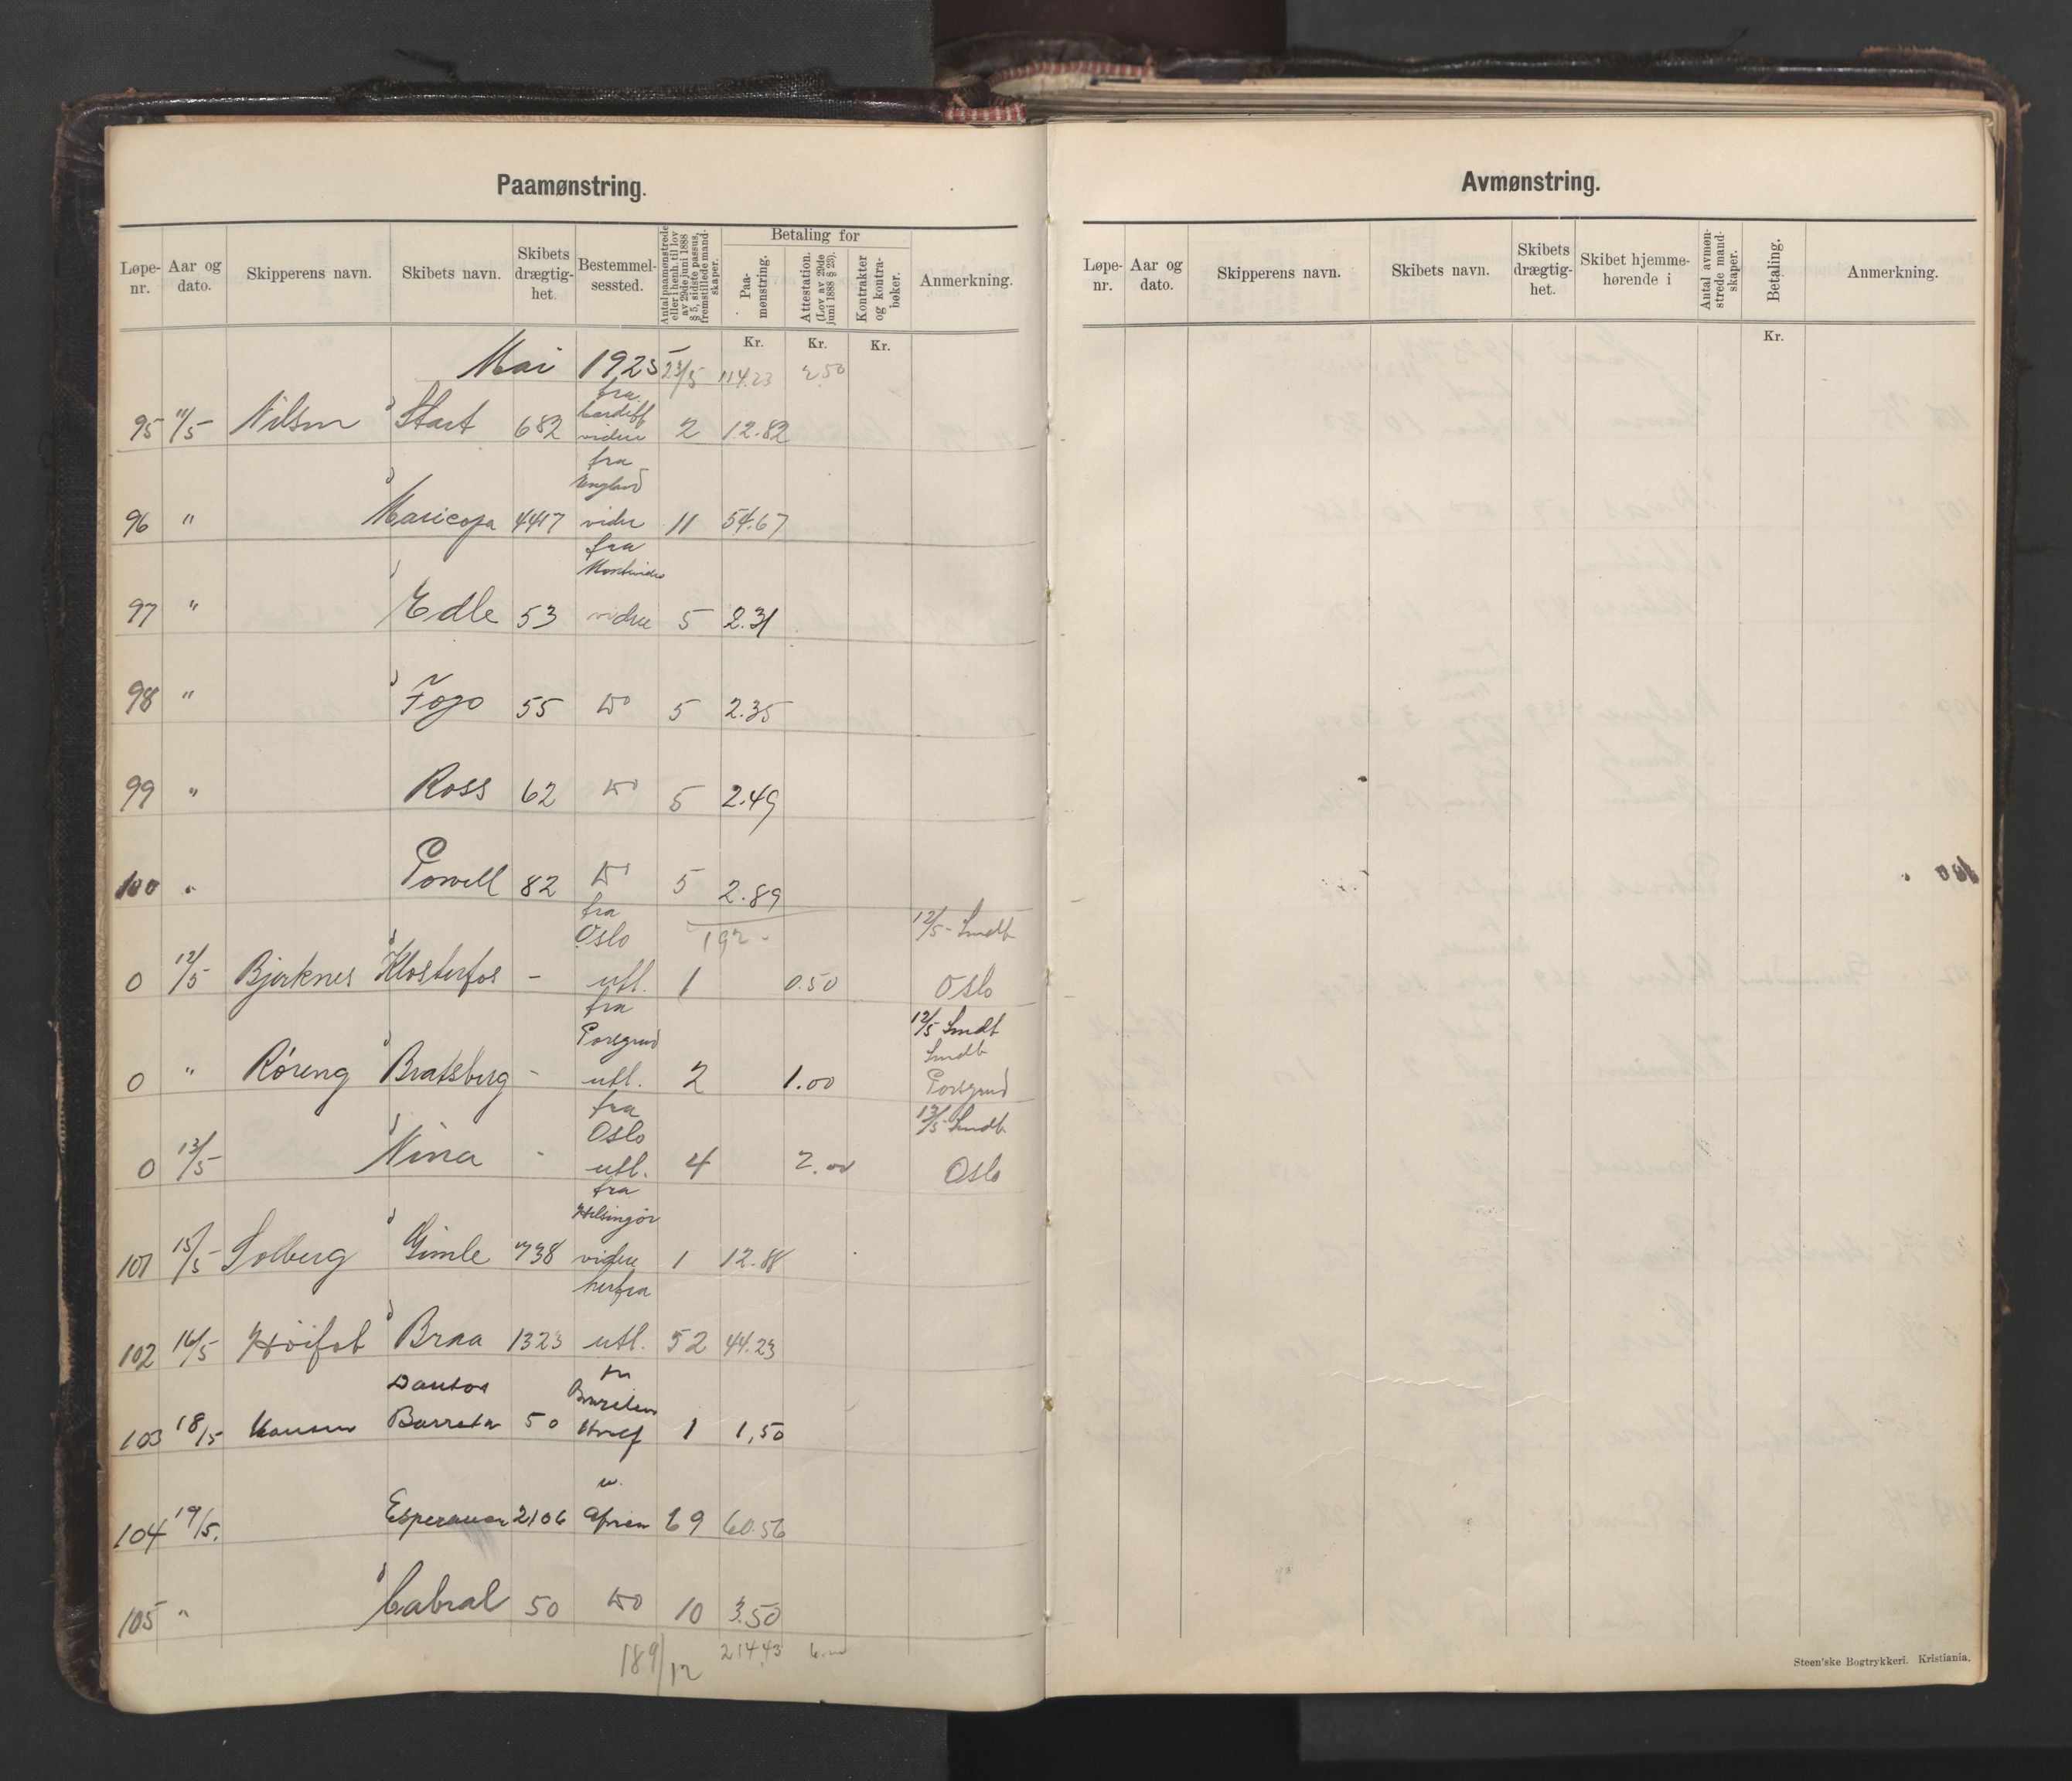 Paamønstring.
Løpe-nr. Aar og dato. Skipperens navn. Skibets navn. Skibets drægtig-het. Bestemmel-sessted. Antal paamønstrede eller i henh. til lov av 29de juni 1888 § 5, sidste passus, fremstillede mand-skaper. Betaling for Paa-mønstring. Attestation. (Lov av 29de juni 1888 § 23). Kontrakter og kontra-bøker. Anmerkning.
Kr. Kr. Kr.
Mai 1925 23/5 114.23 2.50
fra
Cardiff
95 11/5 Nilsen Start 682 videre 2 12.82
fra
England
96 " Maricopa 4417 vider 11 54.67
fra
Montevideo
97 " Edle 53 videre 5 2.31
98 " Fogo 55 do 5 2.35
99 " Ross 62 do 5 2.49
100 " Powell 82 do 5 2.89
fra
Oslo 192 - 12/5 - Smdb
0 12/5 Bjerknes Klosterfos - utl. 1 0.50 Oslo
fra
Porsgrund 12/5 Smdb
Smdb
0 " Røreng Bratsberg - utl. 2 1.00 Porsgrund
fra
Oslo 13/5 - Smdb
0 13/5 Nina - utl. 4 2.00 Oslo
fra
Helsingør
101 15/5 Solberg Gimle 738 videre 1 12.88
herfra
102 16/5 Höifot Braa 1323 utl. 52 44.23
103 18/5 Hansen Barreta 50 1 1,50
104 19/5. 2106 69 60.56
105 " Cabral 50 do 10 3.50
189/12 214.43
Avmønstring.
Løpe-nr. Aar og dato. Skipperens navn. Skibets navn. Skibets drægtig-het. Skibet hjemme-hørende i Antal avmøn-strede mand-skaper. Betaling. Anmerkning.
Kr.
Steen'ske Bogtrykkeri. Kristiania.